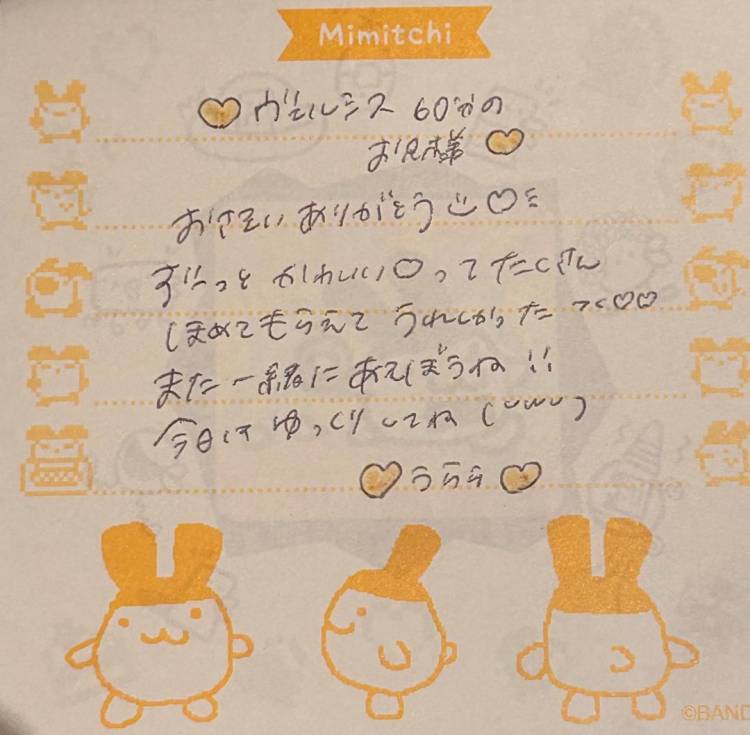 Mimitchi
♡ ヴェルシス 60分の
お兄様 ♡
おさそい ありがとう ♡
ずーっと かわいい♡って たくさん
ほめてもらえて うれしかった ♡♡
また一緒に あそぼうね !!
今日は ゆっくりしてね (◡ω◡)
♡ うらら ♡
©BAND